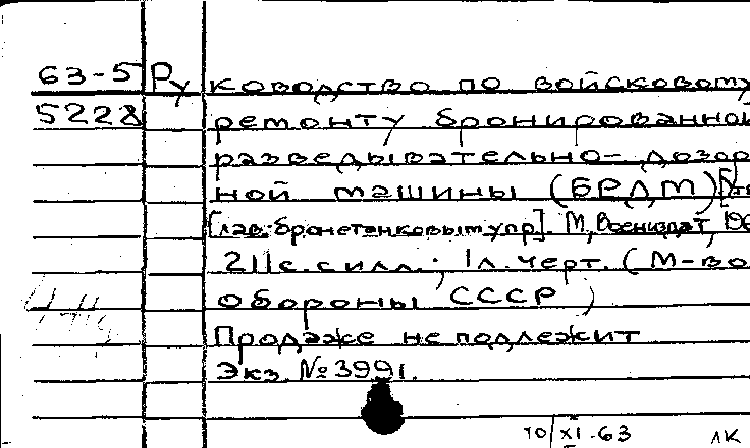 63-5 Руководство по войсковому
5228 ремонту бронированной
разведывательно-дозор
ной машины (БРДМ)
[Глав. бронетанковым упр]. М, Воениздат, 196
211с. с илл.; 1л. черт. (М-во
обороны СССР)
Продаже не подлежит
Экз. №3991.
10/XI-63 ЛК